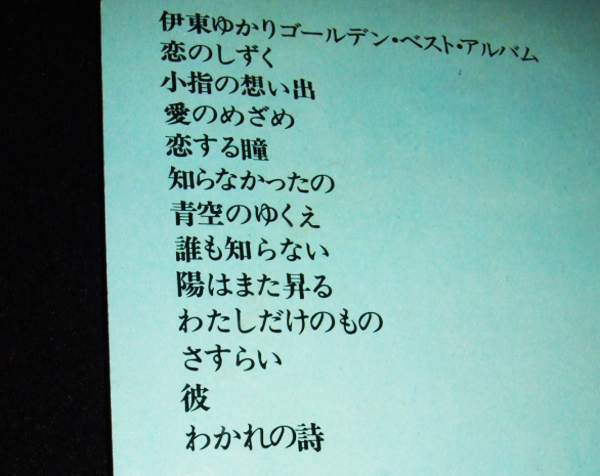 伊東ゆかりゴールデン・ベスト・アルバム
恋のしずく
小指の想い出
愛のめざめ
恋する瞳
知らなかったの
青空のゆくえ
誰も知らない
陽はまた昇る
わたしだけのもの
さすらい
彼
わかれの詩